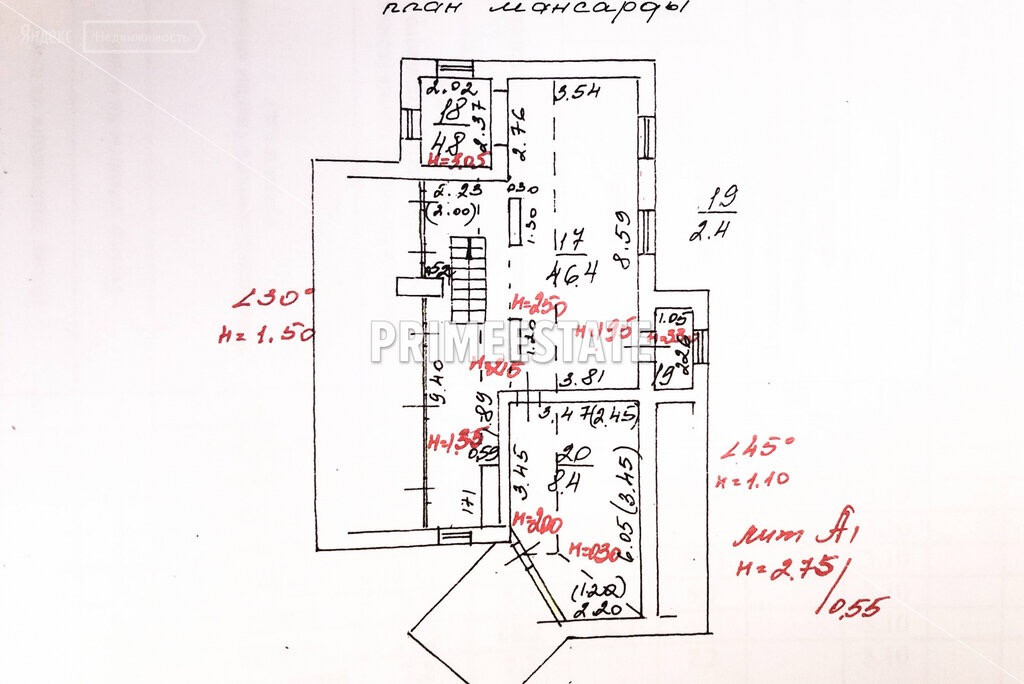 план мансарды
Яндекс Недвижимость
2.02
3.54
18
2.37
2.76
4.8
н=1.05
2.23
0.30
19
(2.00)
1.30
2.4
17
8.59
.52
46.4
∠30°
н=250
1.05
н=1.50
н=195
PRIMEESTATE
1.20
н=215
2.26
19
9.40
3.81
.89
3.47(2.45)
н=1.35
∠45°
0.59
3.45
20
н=1.10
8.4
1.71
6.05(3.45)
н=200
лит А1
н=030
н=2.75
(1.20)
0,55
2.20